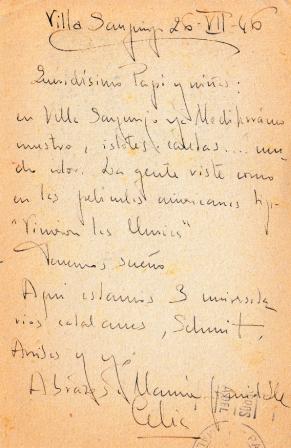 Villa Sanjurjo 26-VII-46
Queridísimo Papi y niños:
en Villa Sanjurjo y Mediterráneo
nuestro, islotes, calitas....
do color. La gente viste como
en las películas americanas tip-
"Vinieron las lluvias"
Tenemos sueño
Aqui estamos 3 universita
rios catalanes, Schmit,
y yo
Abrazos. Mamia,
Celia